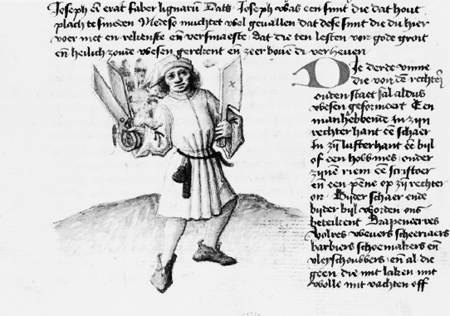 Joseph erat faber lignarii Dats Joseph was een smit die dat hout
plach te smeden Nietsoe muchtet wel gevallen dat dese smit die du hier
voer niet en rekenste en versmaeste dat die ten lesten voer gode groit
en heilich zoude wesen gerekent en zeer boven di verheven
Die derde vinne
die voir den rechter
ouden staet sal aldus
wesen geformeert Een
man hebbende in zijn
rechterhant een schaer
In zijn lufterhant een bijl
of een houmes onder
zijne riem een scrijftoer
en een penne op zijn rechter
oir Bijder schaer ende
bijder bijl worden ons
beteikent Drapenierres
volres wevers scheeraers
barbiers schoemakers en
vleyschouwers en al die
geen die mit laken mit
wolle mit vachten off